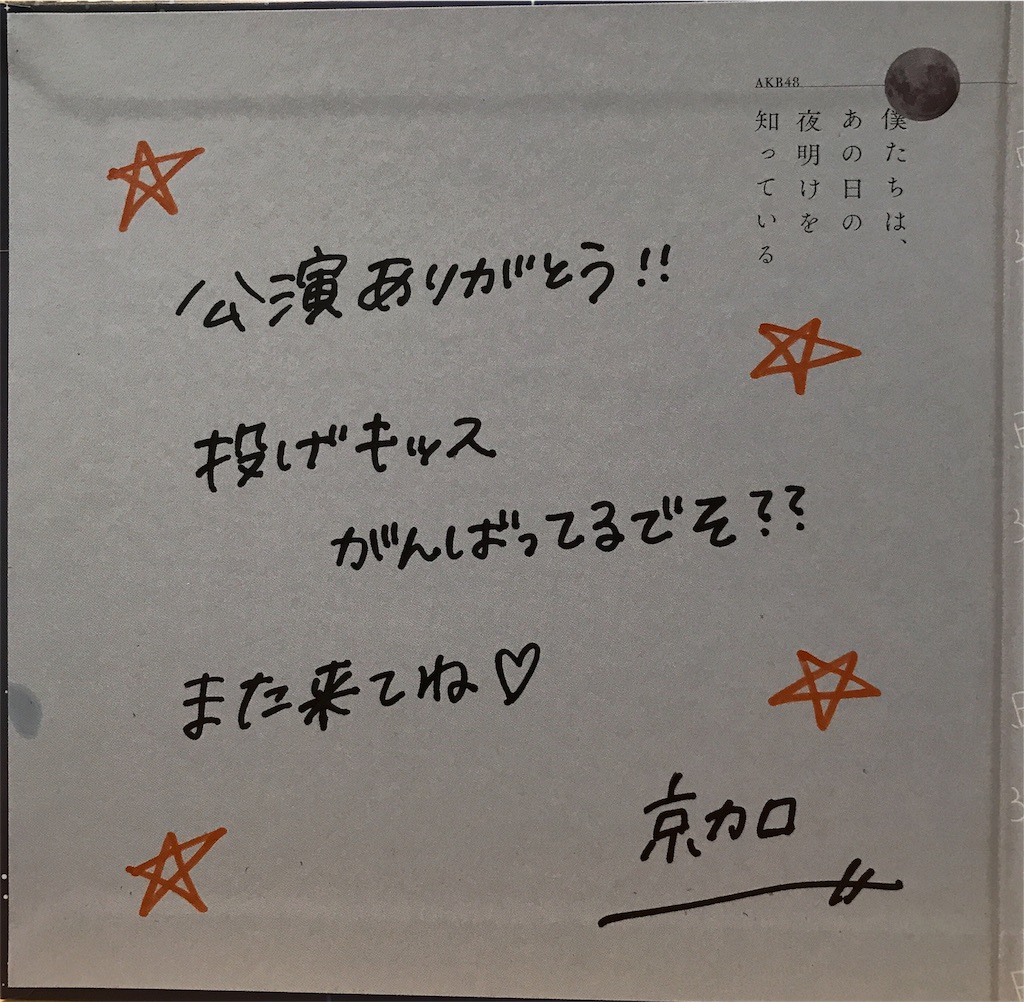 AKB48
僕たちは、
あの日の
夜明けを
知っている
公演ありがとう!!
投げキッス
がんばってるでそ??
また来てね♡
京加